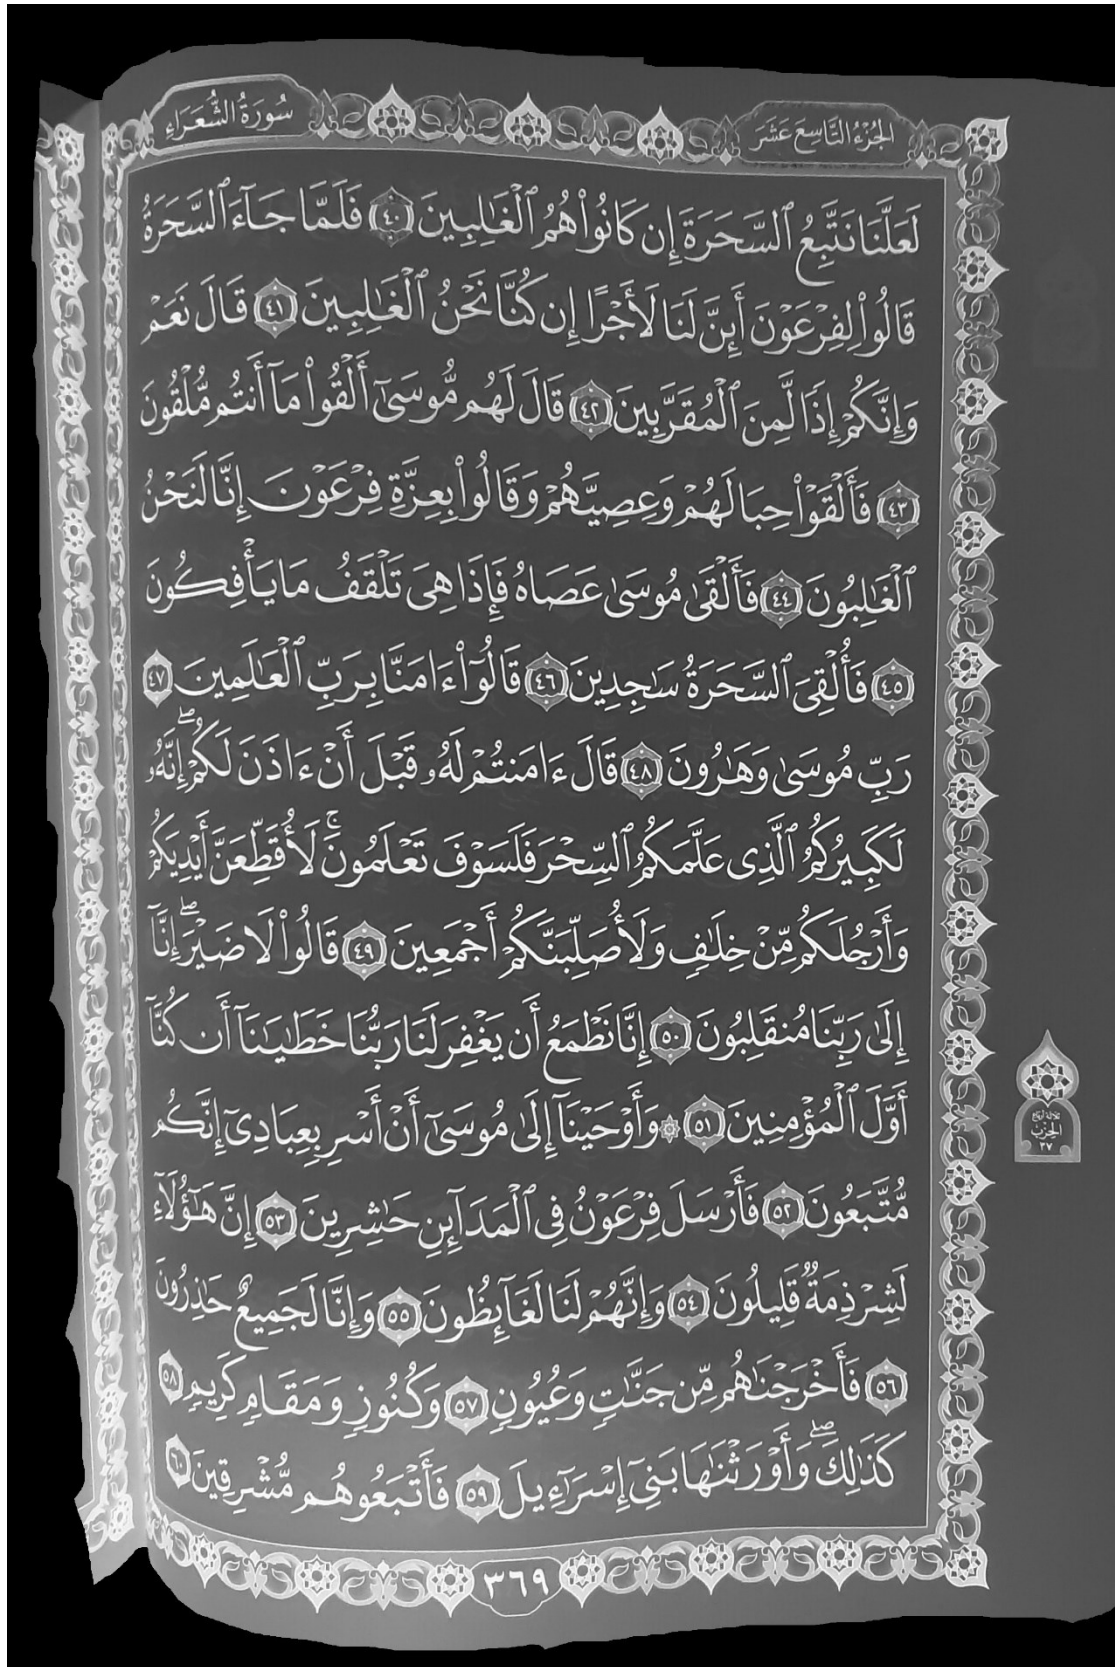 سُورَةُ الشُّعَرَاءِ
الجُزْءُ التَّاسِعَ عَشَرَ
لَعَلَّنَا نَتَّبِعُ ٱلسَّحَرَةَ إِن كَانُوا۟ هُمُ ٱلْغَٰلِبِينَ ٤٠ فَلَمَّا جَآءَ ٱلسَّحَرَةُ
قَالُوا۟ لِفِرْعَوْنَ أَئِنَّ لَنَا لَأَجْرًا إِن كُنَّا نَحْنُ ٱلْغَٰلِبِينَ ٤١ قَالَ نَعَمْ
وَإِنَّكُمْ إِذًا لَّمِنَ ٱلْمُقَرَّبِينَ ٤٢ قَالَ لَهُم مُّوسَىٰٓ أَلْقُوا۟ مَآ أَنتُم مُّلْقُونَ
٤٣ فَأَلْقَوْا۟ حِبَالَهُمْ وَعِصِيَّهُمْ وَقَالُوا۟ بِعِزَّةِ فِرْعَوْنَ إِنَّا لَنَحْنُ
ٱلْغَٰلِبُونَ ٤٤ فَأَلْقَىٰ مُوسَىٰ عَصَاهُ فَإِذَا هِىَ تَلْقَفُ مَا يَأْفِكُونَ
٤٥ فَأُلْقِىَ ٱلسَّحَرَةُ سَٰجِدِينَ ٤٦ قَالُوٓا۟ ءَامَنَّا بِرَبِّ ٱلْعَٰلَمِينَ ٤٧
رَبِّ مُوسَىٰ وَهَٰرُونَ ٤٨ قَالَ ءَامَنتُمْ لَهُۥ قَبْلَ أَنْ ءَاذَنَ لَكُمْ ۖ إِنَّهُۥ
لَكَبِيرُكُمُ ٱلَّذِى عَلَّمَكُمُ ٱلسِّحْرَ فَلَسَوْفَ تَعْلَمُونَ ۚ لَأُقَطِّعَنَّ أَيْدِيَكُمْ
وَأَرْجُلَكُم مِّنْ خِلَٰفٍ وَلَأُصَلِّبَنَّكُمْ أَجْمَعِينَ ٤٩ قَالُوا۟ لَا ضَيْرَ ۖ إِنَّآ
إِلَىٰ رَبِّنَا مُنقَلِبُونَ ٥٠ إِنَّا نَطْمَعُ أَن يَغْفِرَ لَنَا رَبُّنَا خَطَٰيَٰنَآ أَن كُنَّآ
أَوَّلَ ٱلْمُؤْمِنِينَ ٥١ ۞ وَأَوْحَيْنَآ إِلَىٰ مُوسَىٰٓ أَنْ أَسْرِ بِعِبَادِىٓ إِنَّكُم
مُّتَّبَعُونَ ٥٢ فَأَرْسَلَ فِرْعَوْنُ فِى ٱلْمَدَآئِنِ حَٰشِرِينَ ٥٣ إِنَّ هَٰٓؤُلَآءِ
لَشِرْذِمَةٌ قَلِيلُونَ ٥٤ وَإِنَّهُمْ لَنَا لَغَآئِظُونَ ٥٥ وَإِنَّا لَجَمِيعٌ حَٰذِرُونَ
٥٦ فَأَخْرَجْنَٰهُم مِّن جَنَّٰتٍ وَعُيُونٍ ٥٧ وَكُنُوزٍ وَمَقَامٍ كَرِيمٍ ٥٨
كَذَٰلِكَ ۖ وَأَوْرَثْنَٰهَا بَنِىٓ إِسْرَٰٓءِيلَ ٥٩ فَأَتْبَعُوهُم مُّشْرِقِينَ ٦٠
ثلاثة أرباع
الحِزْب
٣٧
٣٦٩